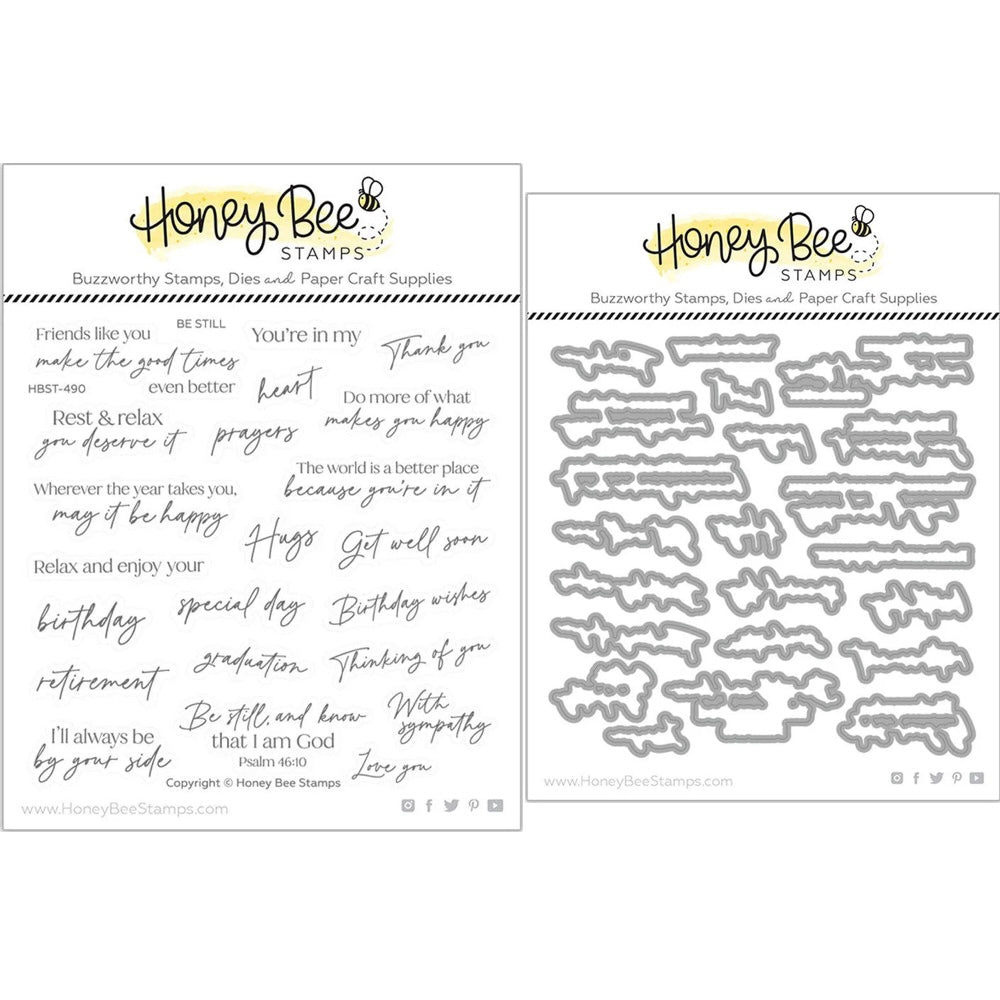 Honey Bee
STAMPS
Buzzworthy Stamps, Dies and Paper Craft Supplies
Friends like you
make the good times
even better
BE STILL
HBST-490
You're in my
heart
Thank you
Rest & relax
you deserve it
prayers
Do more of what
makes you happy
Wherever the year takes you,
may it be happy
The world is a better place
because you're in it
Hugs
Get well soon
Relax and enjoy your
birthday
special day
Birthday wishes
retirement
graduation
Thinking of you
I'll always be
by your side
Be still, and know
that I am God
Psalm 46:10
With
sympathy
Love you
Copyright © Honey Bee Stamps
www.HoneyBeeStamps.com
Honey Bee
STAMPS
Buzzworthy Stamps, Dies and Paper Craft Supplies
www.HoneyBeeStamps.com